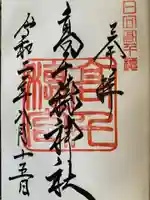 日向高千穂
奉拝
高千穂神社
令和二年八月十五日